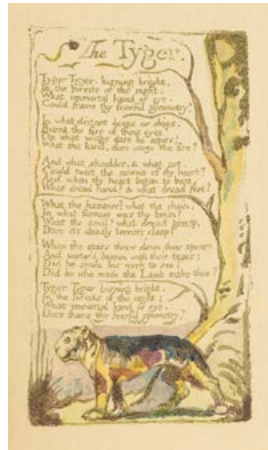 The Tyger.
Tyger Tyger. burning bright,
In the forests of the night;
What immortal hand or eye.
Could frame thy fearful symmetry?
In what distant deeps or skies.
Burnt the fire of thine eyes?
On what wings dare he aspire?
What the hand, dare sieze the fire?
And what shoulder, & what art,
Could twist the sinews of thy heart?
And when thy heart began to beat,
What dread hand? & what dread feet?
What the hammer? what the chain,
In what furnace was thy brain?
What the anvil? what dread grasp,
Dare its deadly terrors clasp?
When the stars threw down their spears
And water'd heaven with their tears:
Did he smile his work to see?
Did he who made the Lamb make thee?
Tyger Tyger burning bright,
In the forests of the night:
What immortal hand or eye,
Dare frame thy fearful symmetry?